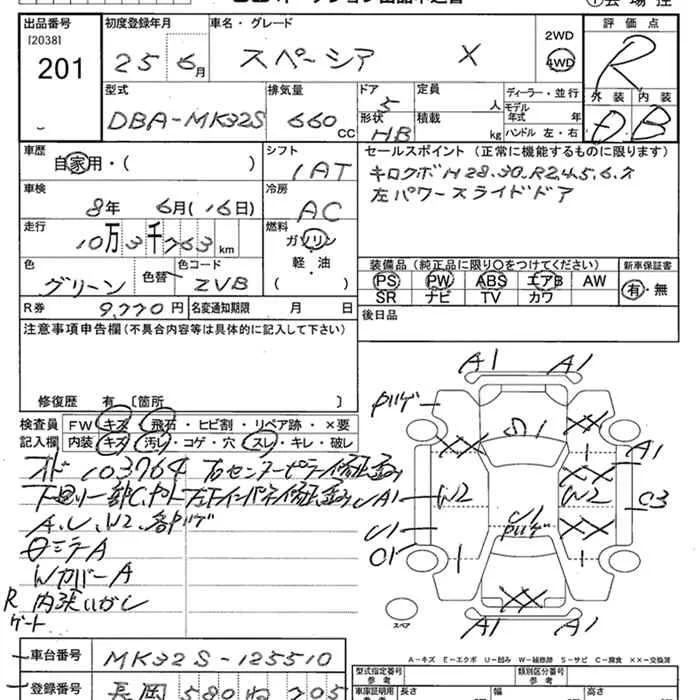 出品番号 初度登録年月 車名・グレード 2WD 評価点
[2038]
201 25 6月 スペーシア X 4WD R
型式 排気量 ドア 定員 ディーラー・並行 外装 内装
DBA-MK32S 660 CC 5 人 モデル年式 年 D B
形状 HB 積載 kg ハンドル 左・右
車歴 自家用・( ) シフト 1AT セールスポイント (正常に機能するものに限ります)
キロクボ H28.30.R2.4.5.6.ス
左パワースライドドア
車検 8年 6月(16日) 冷房 AC
走行 10万3千763km 燃料 ガソリン・軽・油( )
色 グリーン 色替 色コード ZVB
装備品 (純正品に限り○をつけてください) 新車保証書
PS PW ABS エアB AW 有・無
SR ナビ TV カワ
R券 9,770円 名変通知期限 月 日
後日品
注意事項申告欄 (不具合内容等は具体的に記入して下さい)
修復歴 有 〔箇所 〕
検査員記入欄 FW キズ・飛石・ヒビ割・リペア跡・×要
内装 キズ・汚レ・コゲ・穴・スレ・キレ・破レ
オド103764 右センターピラー修正済み
A.U.W2.各部ハゲ
Wカバー A
R ゲート 内張いがし
A1 A1
ハゲ
A1
W2 W2
A1 C3
U1 U1
ハゲ
O1
A1 A1
スペア
A-キズ E-エクボ U-凹み W-補修跡 S-サビ C-腐食 XX-交換
車台番号 MK32S-125510
登録番号 長岡 580 ね 705
型式指定番号 類別区分番号
参考 参考
車庫証明用 長さ 幅 高さ